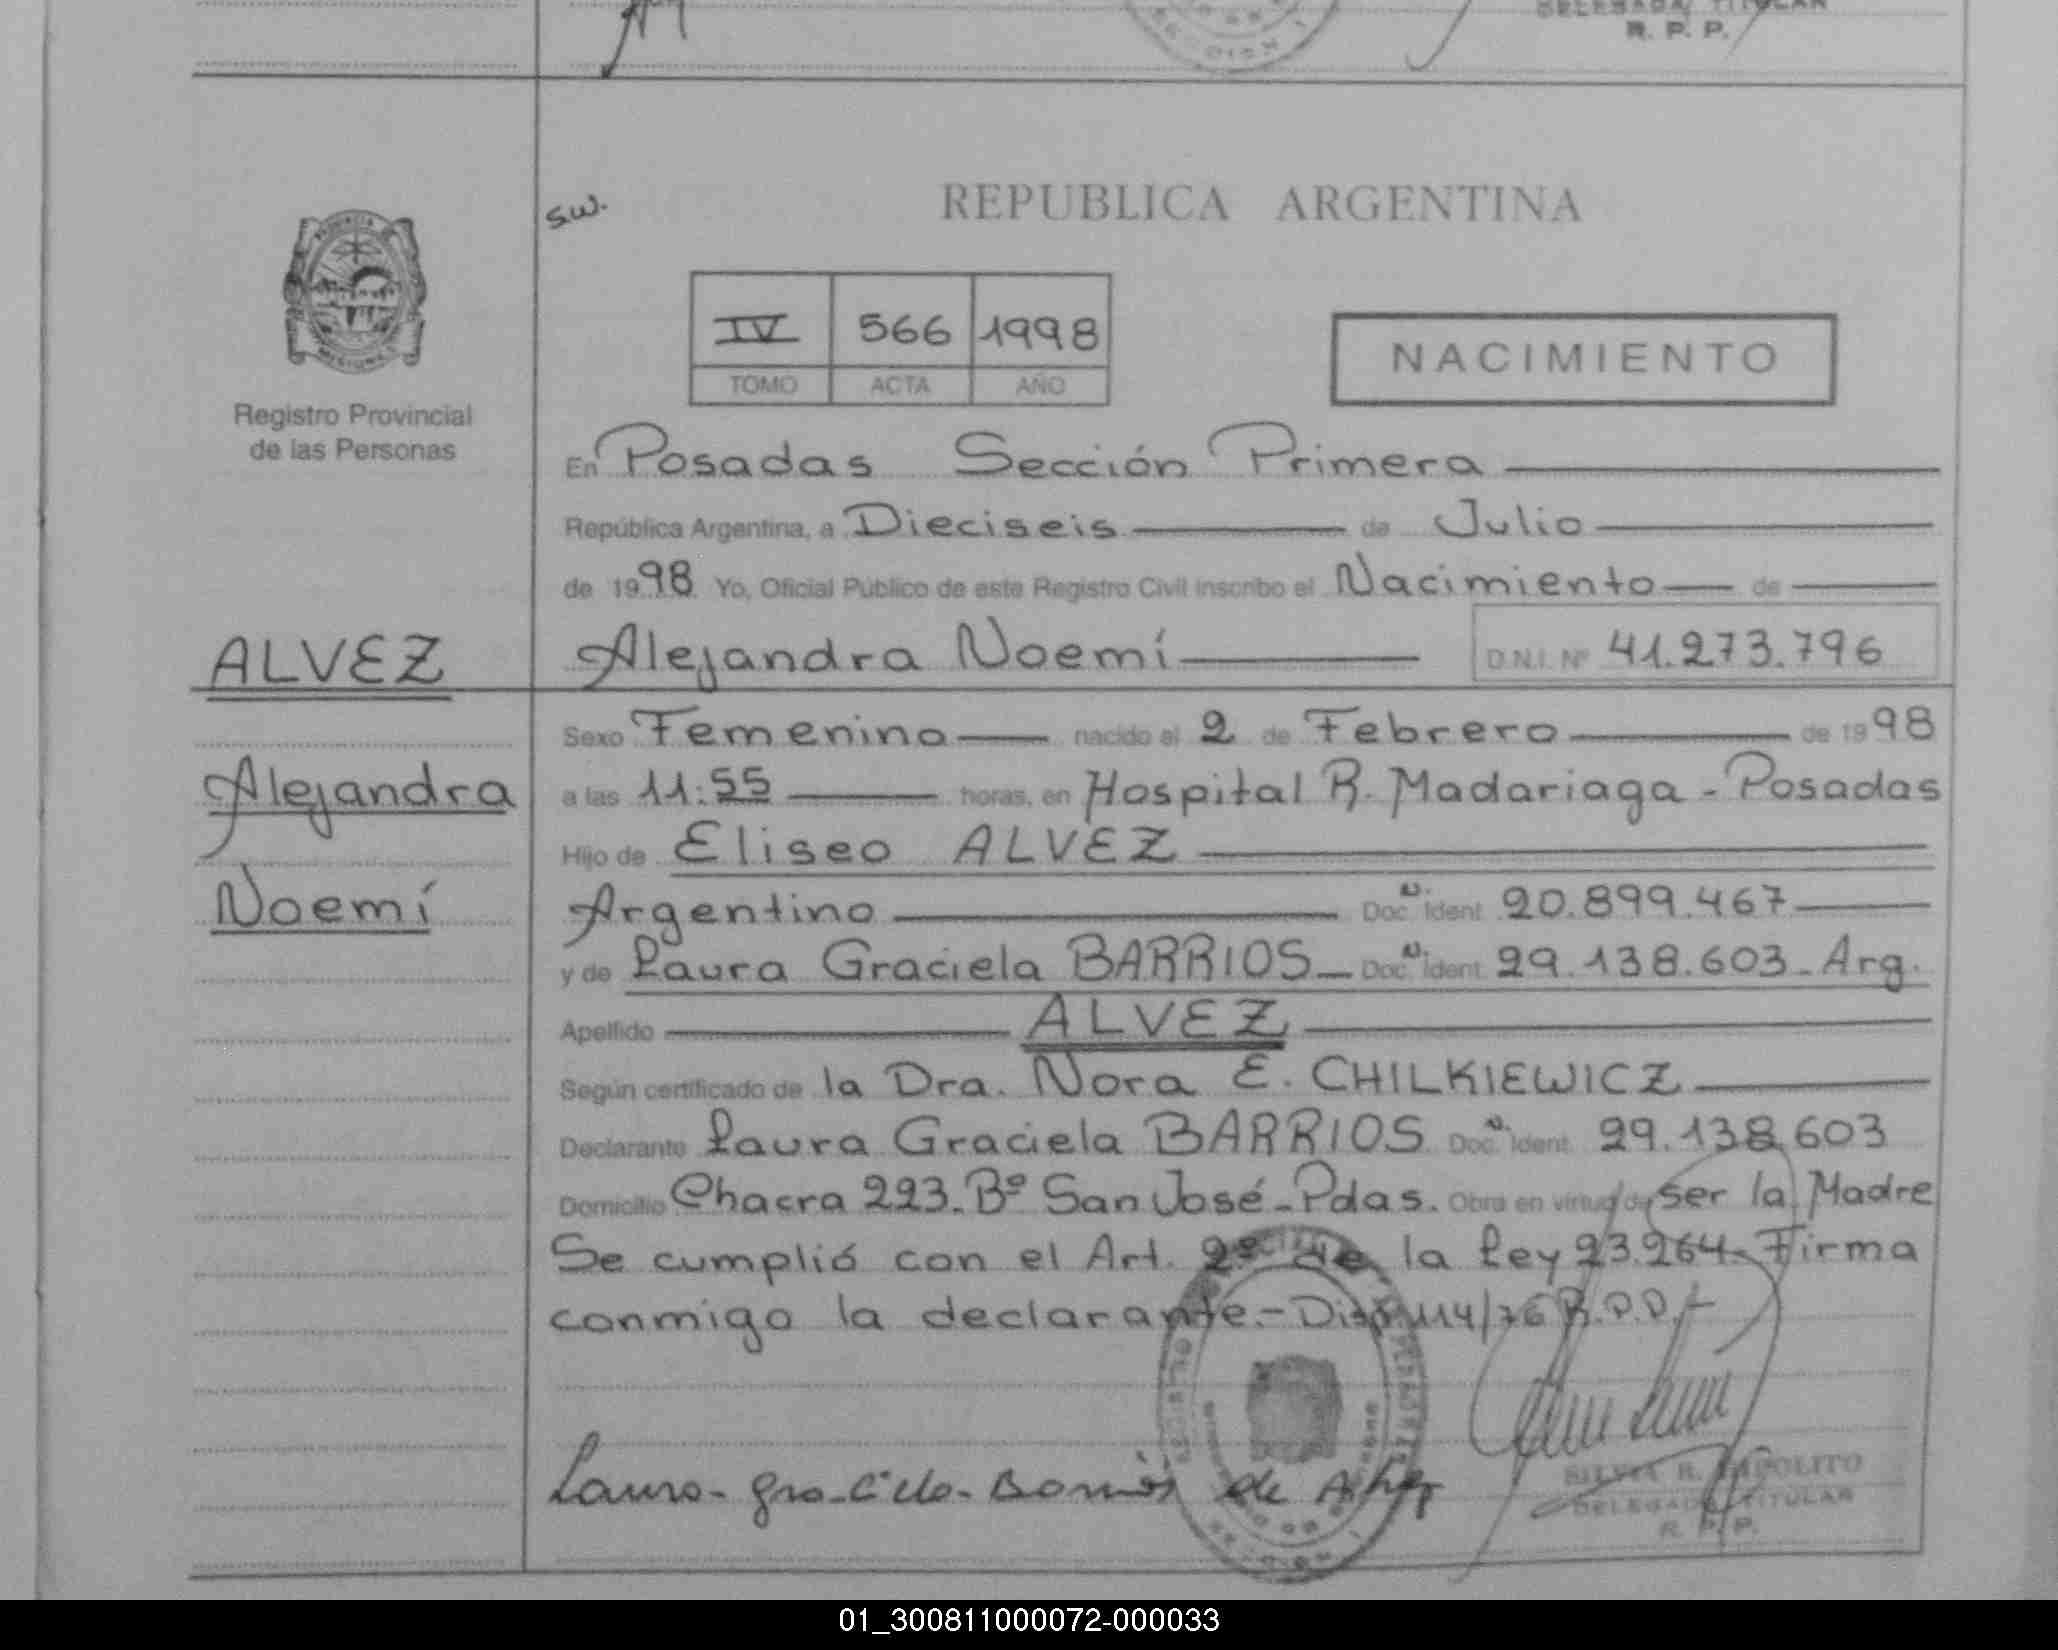 DELEGADA TITULAR
R. P. P.
s.w.
REPUBLICA ARGENTINA
IV 566 1998
TOMO ACTA AÑO
NACIMIENTO
Registro Provincial
de las Personas
En Posadas Sección Primera
República Argentina, a Dieciseis de Julio
de 1998 Yo, Oficial Público de este Registro Civil inscribo el Nacimiento de
ALVEZ
Alejandra Noemí D.N.I. Nº 41.273.796
Sexo Femenino nacido el 2 de Febrero de 1998
Alejandra
a las 11:55 horas, en Hospital R. Madariaga - Posadas
Hijo de Eliseo ALVEZ
Noemí
Argentino Doc. Ident 20.899.467
y de Laura Graciela BARRIOS - Doc. Ident 29.138.603 - Arg.
Apellido ALVEZ
Según certificado de la Dra. Nora E. CHILKIEWICZ
Declarante Laura Graciela BARRIOS Doc. Ident. 29.138.603
Domicilio Chacra 223. Bº San José - Pdas. Obra en virtud de ser la Madre
Se cumplió con el Art. 2º de la Ley 23.264. Firma
conmigo la declarante.- Disp. 114/76 R.P.P.-
Laura Graciela Barrios de Alvez
SILVIA R. HIPOLITO
DELEGADA TITULAR
R. P. P.
01_300811000072-000033